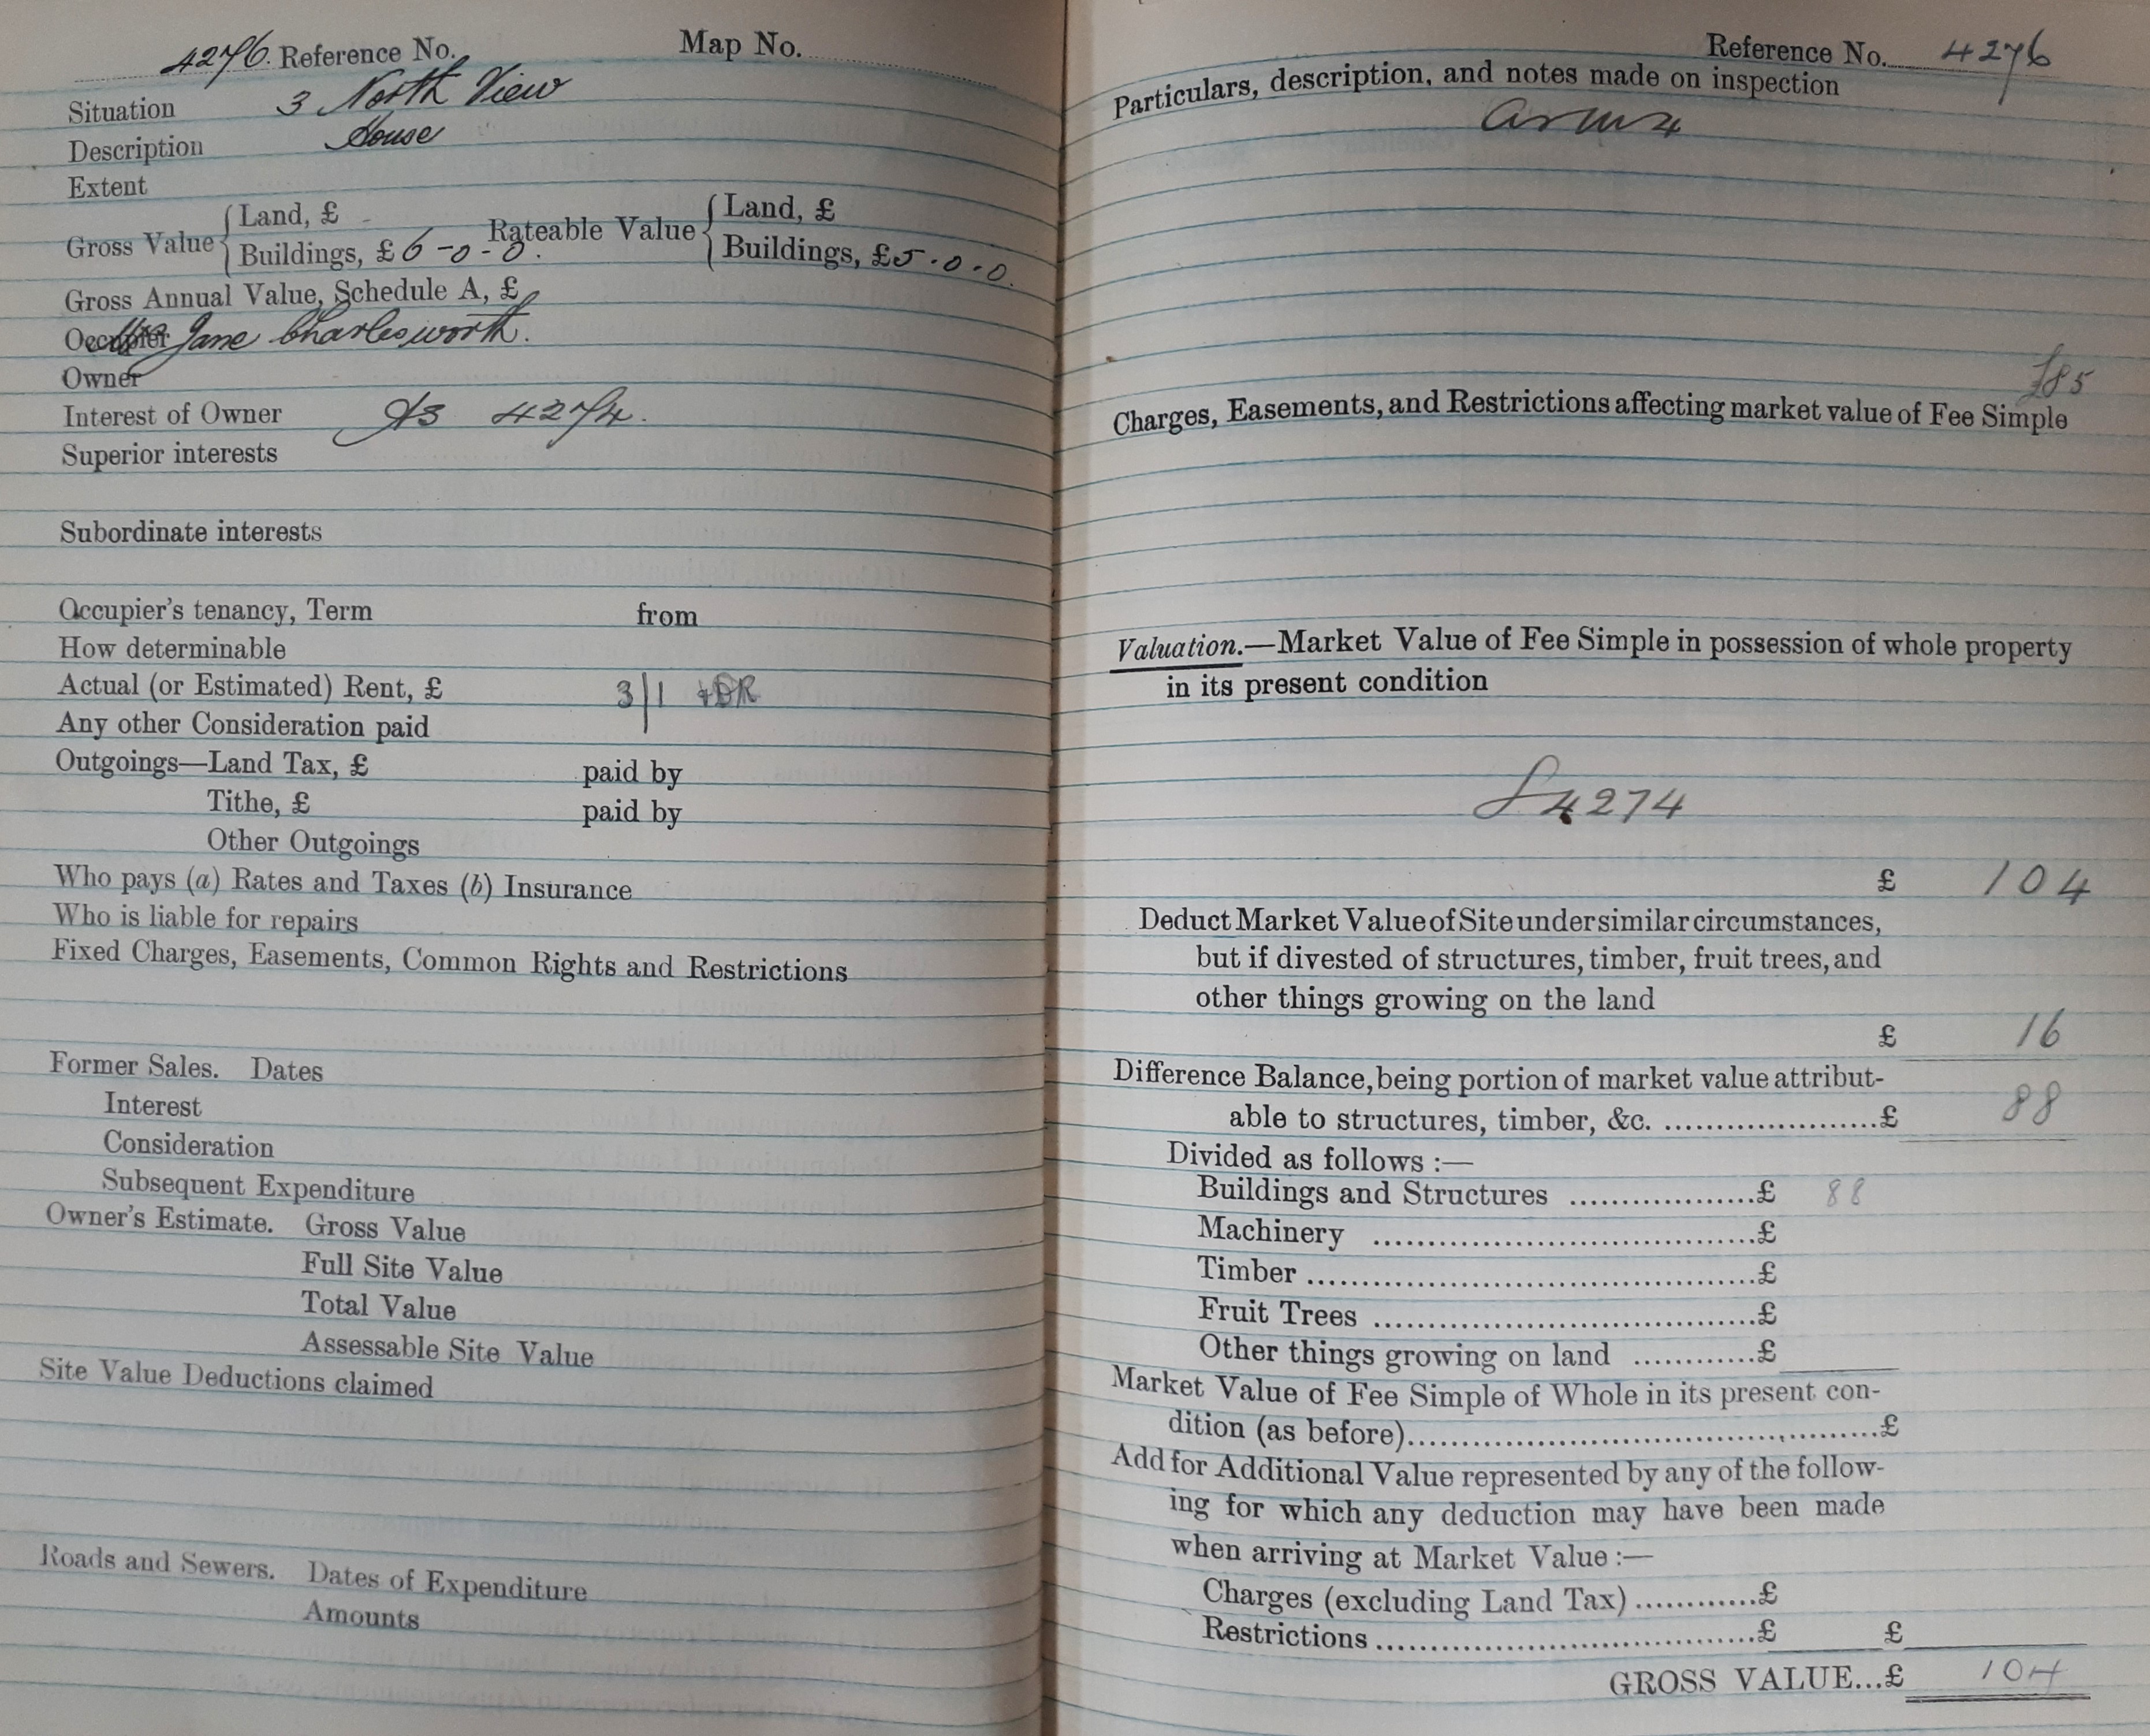 4276. Reference No. Map No.
Situation 3 North View
Description House
Extent
Gross Value { Land, £ - Rateable Value { Land, £
Buildings, £ 6-0-0. Buildings, £5.0.0.
Gross Annual Value, Schedule A, £
Occupier Jane Charlesworth.
Owner
Interest of Owner As 4274.
Superior interests
Subordinate interests
Occupier's tenancy, Term from
How determinable
Actual (or Estimated) Rent, £ 3/1 + DR
Any other Consideration paid
Outgoings—Land Tax, £ paid by
Tithe, £ paid by
Other Outgoings
Who pays (a) Rates and Taxes (b) Insurance
Who is liable for repairs
Fixed Charges, Easements, Common Rights and Restrictions
Former Sales. Dates
Interest
Consideration
Subsequent Expenditure
Owner's Estimate. Gross Value
Full Site Value
Total Value
Assessable Site Value
Site Value Deductions claimed
Roads and Sewers. Dates of Expenditure
Amounts
Reference No. 4276
Particulars, description, and notes made on inspection
£85
Charges, Easements, and Restrictions affecting market value of Fee Simple
Valuation.—Market Value of Fee Simple in possession of whole property
in its present condition
4274
£ 104
Deduct Market Value of Site under similar circumstances,
but if divested of structures, timber, fruit trees, and
other things growing on the land
£ 16
Difference Balance, being portion of market value attribut-
able to structures, timber, &c. ......................£ 88
Divided as follows :—
Buildings and Structures ...................£ 88
Machinery ......................................£
Timber .............................................£
Fruit Trees ......................................£
Other things growing on land ............£
Market Value of Fee Simple of Whole in its present con-
dition (as before)...............................................£
Add for Additional Value represented by any of the follow-
ing for which any deduction may have been made
when arriving at Market Value :—
Charges (excluding Land Tax) ............£
Restrictions ......................................£ £
GROSS VALUE...£ 104